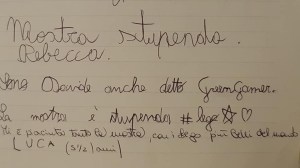 Mostra stupenda.
Rebecca.
Sono Davide anche detto GreenGamer.
La mostra è stupenda #lego ☆ ♡
Mi è piaciuta tanto la mostra, con i lego più belli del mondo
LUCA (5½ anni)